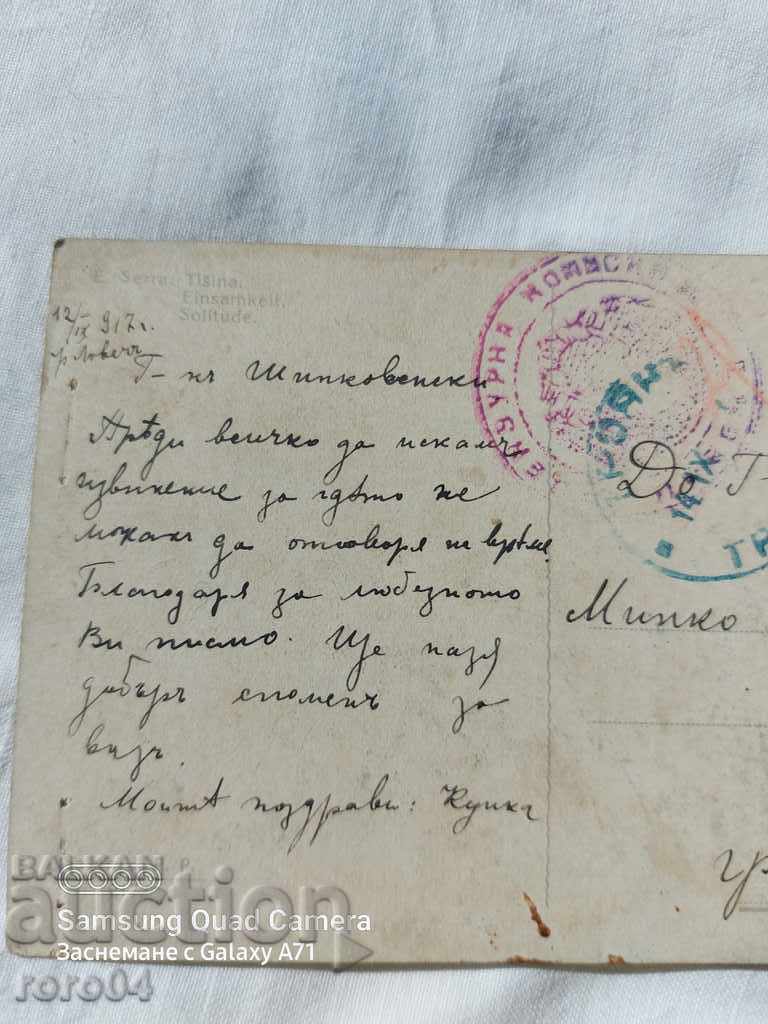 E. Serra. Tišina.
Einsamkeit.
Solitude.
12/IX 917 г.
гр Ловечъ
Г-нъ Шипковенски
Прѣди всичко да искамъ
извинение за гдѣто не
можахъ да отговоря на врѣме.
Благодаря за любезното
Ви писмо. Ще пазя
добъръ споменъ за
васъ.
Моитѣ поздрави:
До Г-
Минко
гр
ЕНЗУРНА КОМИСИЯ
14 IX
ТР
BALKAN
auction
Samsung Quad Camera
Заснемане с Galaxy A71
roro04